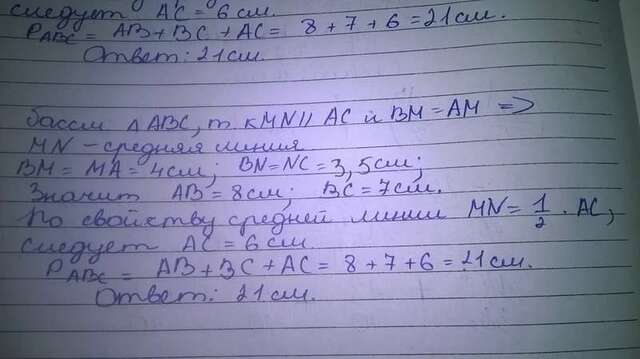 следует AC = 6 см.
P ABC = AB + BC + AC = 8 + 7 + 6 = 21 см.
Ответ: 21 см.
Рассм △ ABC, т. к MN || AC и BM = AM =>
MN - средняя линия
BM = MA = 4 см; BN = NC = 3,5 см;
Значит AB = 8 см; BC = 7 см.
По свойству средней линии MN = 1/2 · AC,
следует AC = 6 см.
P ABC = AB + BC + AC = 8 + 7 + 6 = 21 см.
Ответ: 21 см.